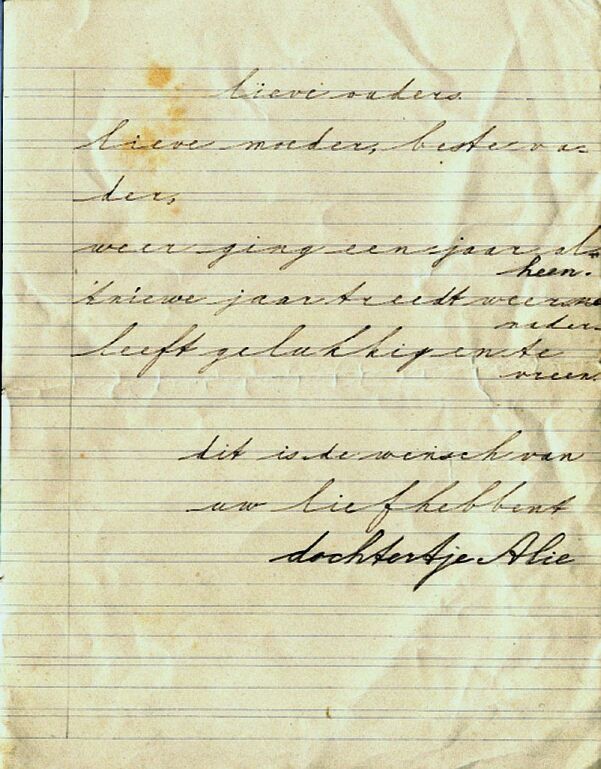 lieve ouders.
lieve moeder, beste va=
der,
weer ging een jaar al=
heen.
't niewe jaar treedt weer
nader.
leeft gelukkig en te
vreen.
dit is de wensch van
uw liefhebbent
dochtertje Alie